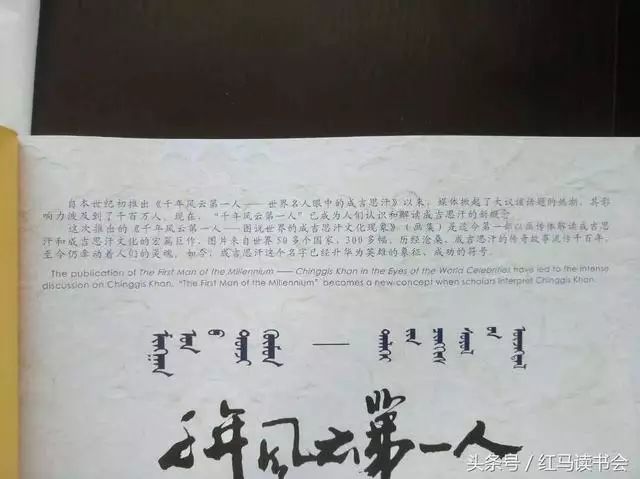 自本世纪初推出《千年风云第一人——世界名人眼中的成吉思汗》以来，媒体掀起了大议谊话题的热潮，其影
响力波及到了千百万人。现在，“千年风云第一人”已成为人们认识和解读成吉思汗的新概念。
这次推出的《千年风云第一人——图说世界的成吉思汗文化现象》（画集）是迄今第一部以画传体解读成吉思
汗和成吉思汗文化的宏篇巨作。图片来自世界50多个国家，300多幅。历经沧桑，成吉思汗的传奇故事流传千百年，
至今仍牵动着人们的灵魂，如今，成吉思汗这个名字已经升华为英雄的象征、成功的符号。
The publication of The First Man of the Millennium —— Chinggis Khan in the Eyes of the World Celebrities have led to the intense
discussion on Chinggis Khan. "The First Man of the Millennium" becomes a new concept when scholars interpret Chinggis Khan.
千年风云第一人
头条号 / 红马读书会